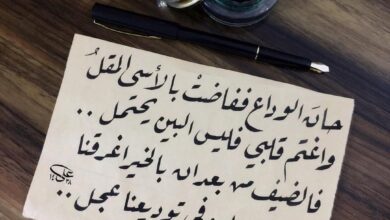 حانَ الوداع ففاضتْ بالأسى المقلُ
واغتم قلبي فليس البين يحتمل ..
فالضيف من بعد ان بالخير اغرقنا
في توديعنا عجل ..
علي